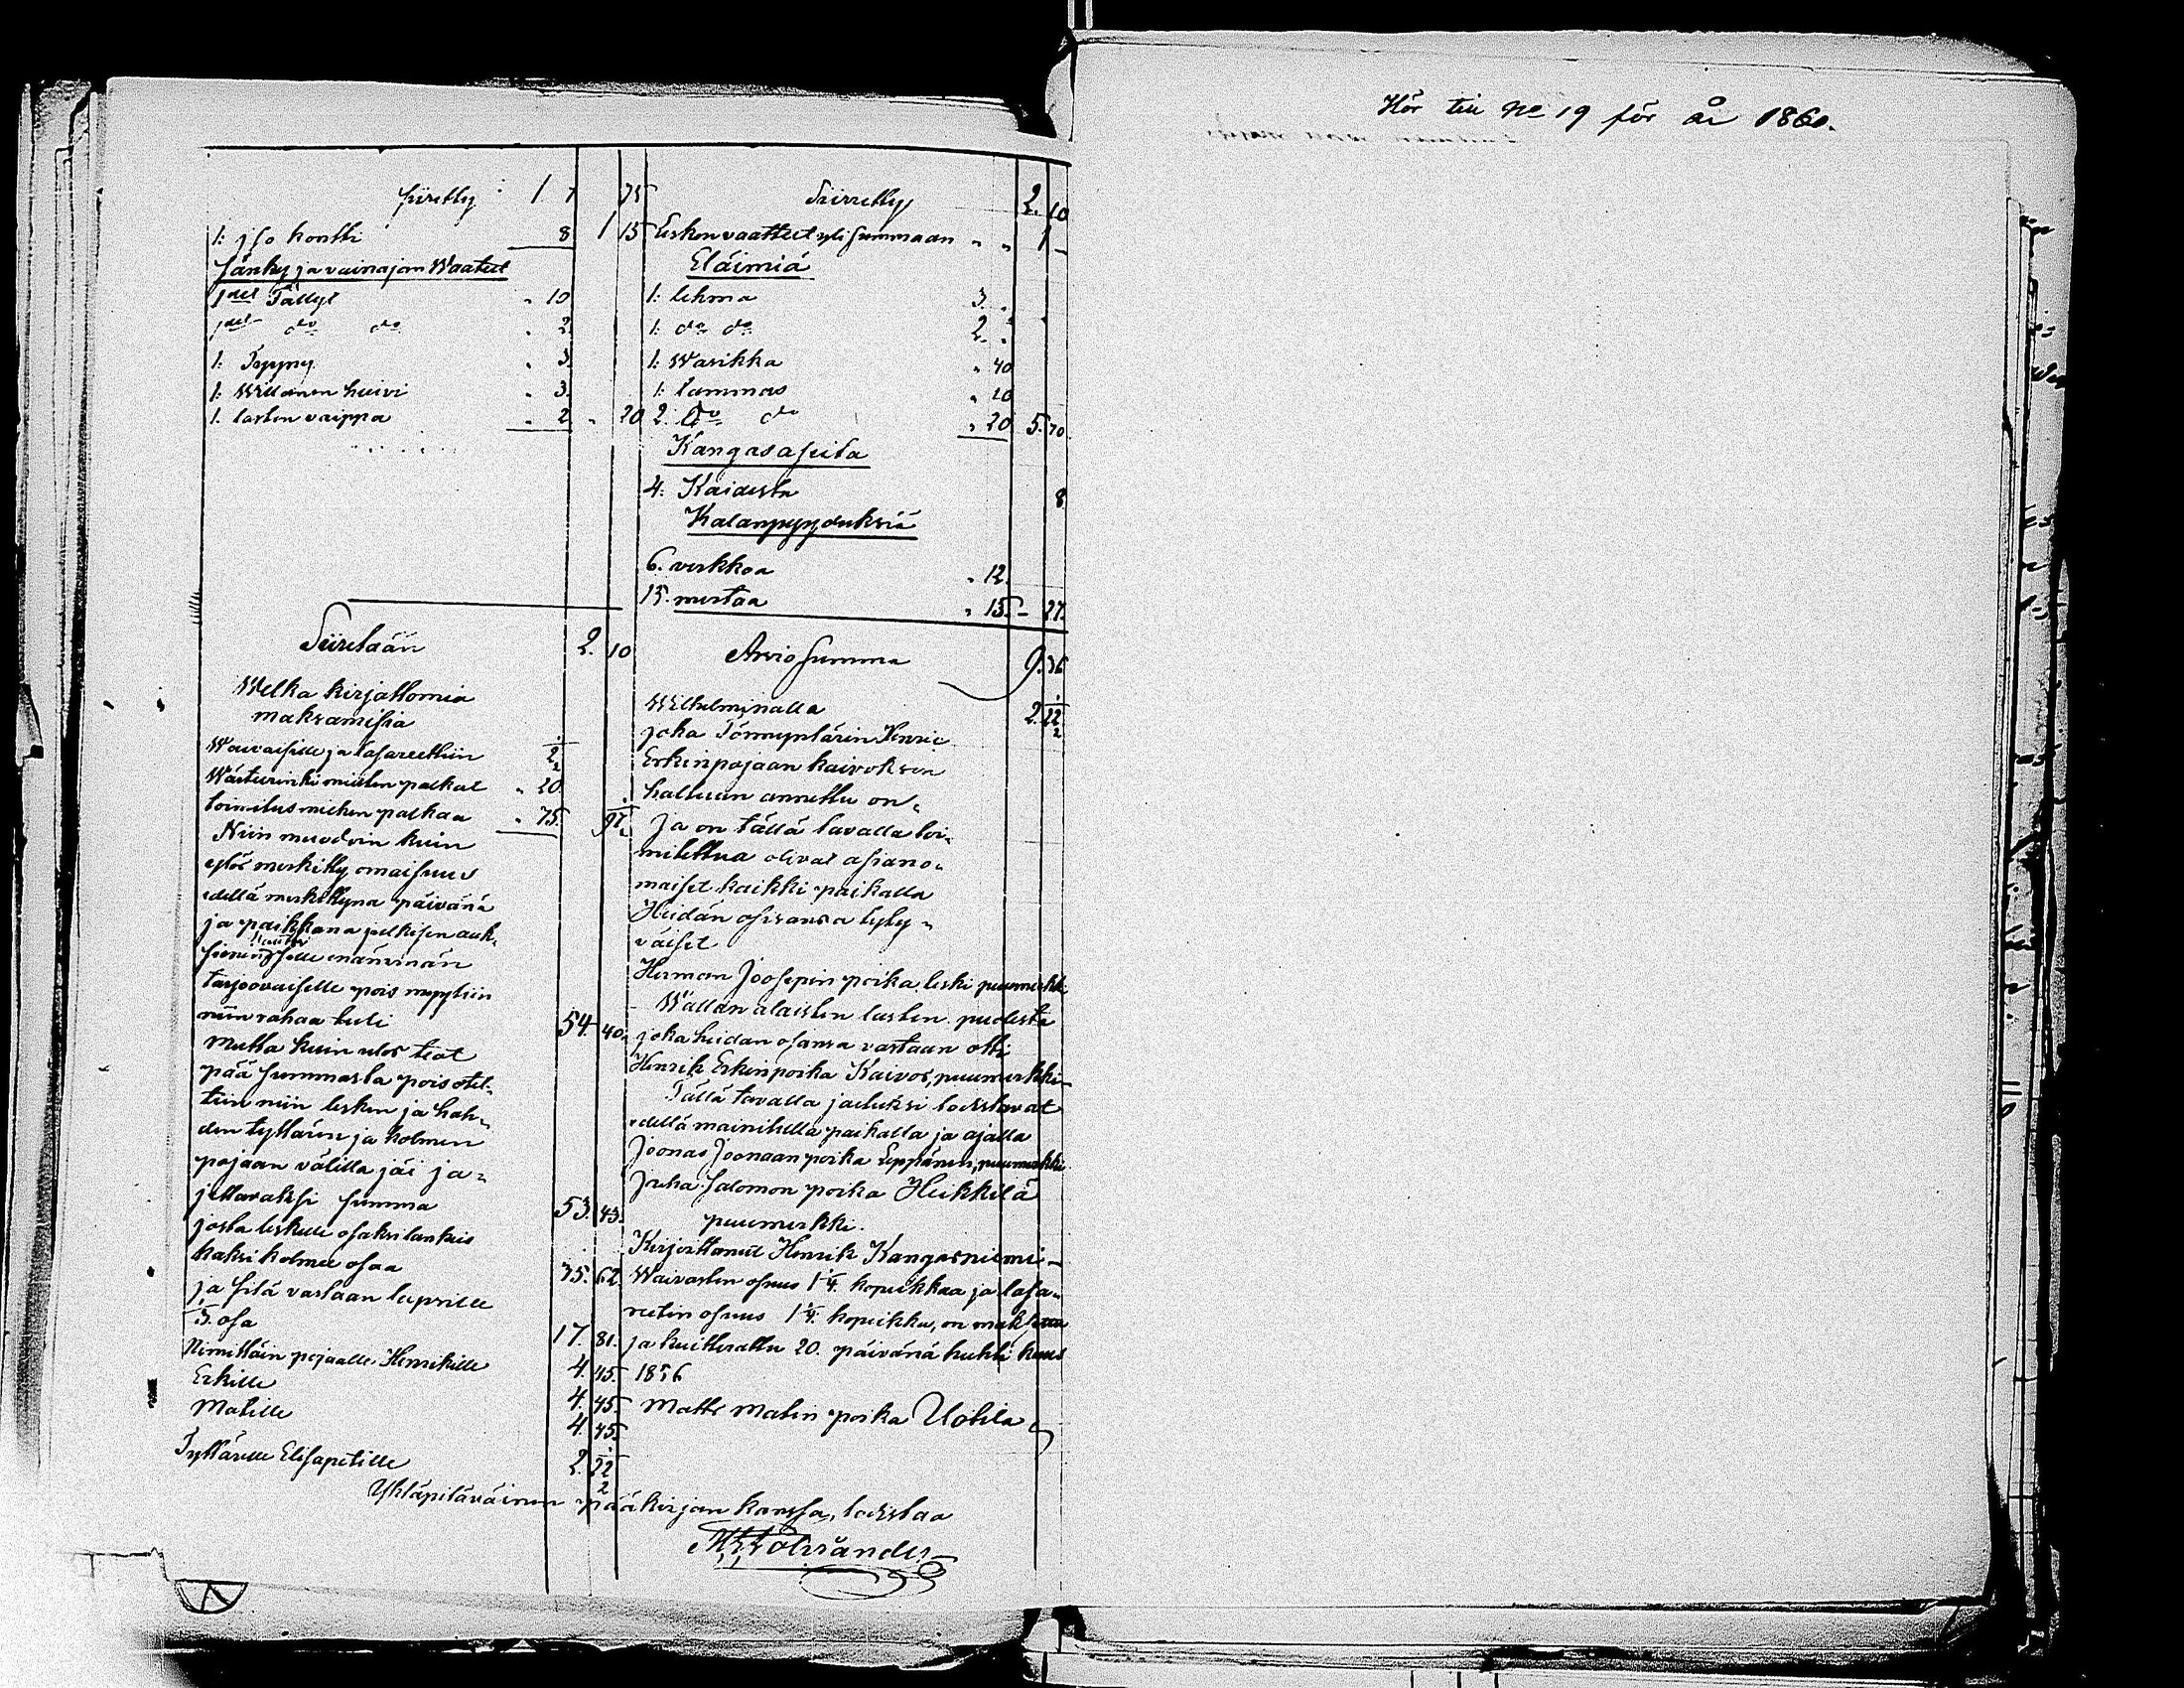 siiretty 1 7 75
1: iso kontti 8 1 15
Sänky ja vainajan Waateet
1det Tällyt " 10
1det do do " 2
1: Tyyny " 3
1: Willanen huivi " 3.
1. lasten vaippa " 2 " 20
Siiretään 2. 10
Welka kirjattomia
maksamisia
Waivaisille ja Lasareethiin 2 1/2
Wärteerinki miesten palkat " 20
toimitus miehen palkaa " 75. 97 1/2
Niin muodoin kuin
ylös merkitty omaisuus
edellä merkittynä päivänä
ja paikkana julkisen auk-
tarjoovaiselle pois myytiin
niin rahaa tuli 54. 40.
Mutta kuin ulos teot
pää summasta pois otet-
tiin niin lesken ja kah-
den tyttären ja kolmen
pojaan välillä jäi ja-
jettavaksi summa 53. 43.
josta leskelle osaksi lankeis
kaksi kolmee osaa 35. 62.
ja sitä vastaan lapsille
1/3. osa 17. 81.
Nimittäin pojaalle Henrikille 4. 45.
Erkille 4. 45.
Matille 4. 45.
Tyttärelle Elisapetille 2. 22 1/2
Siirretty 2. 10
Lesken vaatteet yli summaan " " 1 -
Eläimiä
1: lehmä 3. "
1: do do 2. "
1: Wasikka " 40
1: lammas " 10
2: do do " 20 5. 70
Kangasaseita
4: Kaidesta 8
Kalanpyyduksiä
6. verkkoa " 12.
15. mertaa " 15. - 27.
Arvio summa 9. 36
Wilhelminalla 2. 22 1/2
joka Förmyntärin Henric
Erkinpojaan kaivoksen
haltuun annettu on.
Ja on tällä tavalla toi-
mitettua olivat asiano-
maiset kaikki paikalla
Heidän osisansa tyty-
väiset
Herman Joosepin poika leski puumerkki
Wallan alaisten lasten puolesta
joka heidän osansa vastaan otti
Henrik Erkinpoika Kaivos, puumerkki-
Tällä tavalla jaetuksi todistavat
edellä mainitulla paikalla ja ajalla
Joonas Joonaan poika Leppänen, puumerkki
Juha Salomon poika Heikkilä
puumerkki.
Kirjoittanut Henrik Kangasniemi-
Waivasten osuus 1 1/4. kopeikkaa ja lasa-
reetin osuus 1 1/4. kopeikka, on maksettu
ja kuitterattu 20. päivänä huhti kuus
1856
Matts Matin poika Uotila
Yhtäpitäväinen pääkirjan kanssa, todistaa
Hör till No 19 för år 1860.